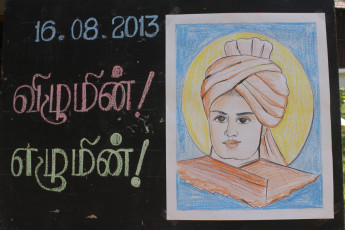 16.08.2013
விழுமின்!
எழுமின்!